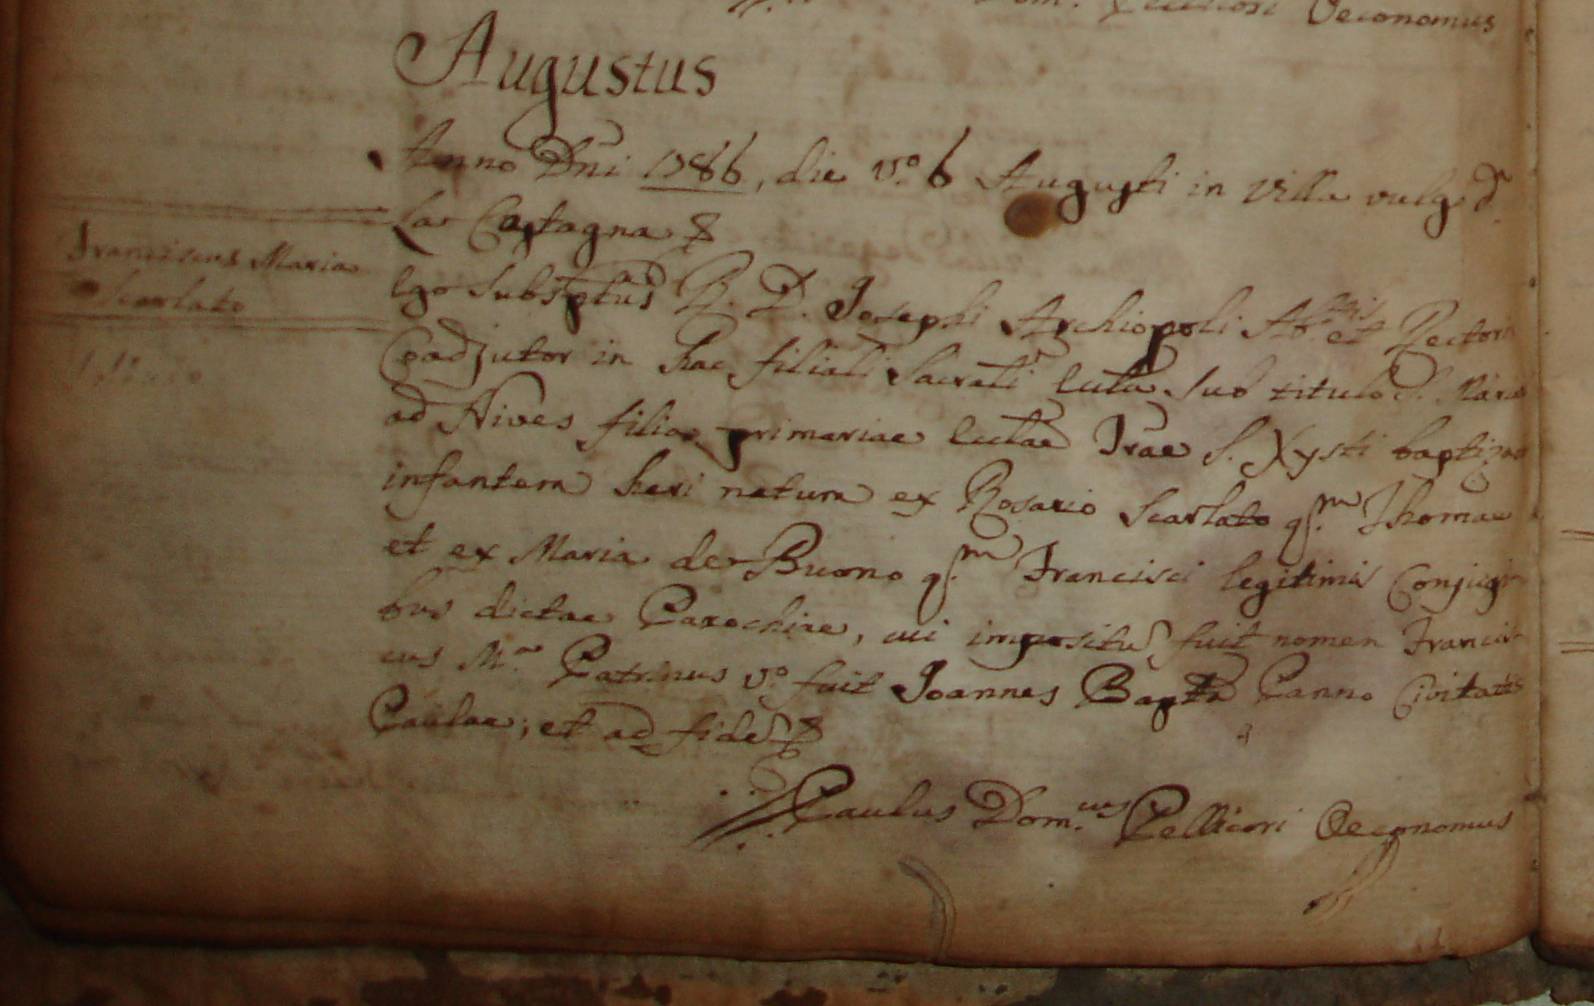 Dom. Pellicori Oeconomus
Augustus
Anno Dñi 1786, die v.º 6 Augusti in Villa vulgo d.ª
La Castagna &
Franciscus Maria
Scarlato
Ego Subsptus R. D. Josephi Archiopoli Ab.tis et Rectoris
Coadjutor in hac filiali Sacrali Eccla sub titulo S. Mariae
ad Nives filia primariae Ecclae Irae S. Xysti baptizavi
infantem heri natum ex Rosario Scarlato q.m Thomae
et ex Maria de Buono q.m Francisci legitimis Conjugi-
bus dictae Parochiae, cui impositũ fuit nomen Francis-
cus M.ª Patrinus v.º fuit Joannes Bapta Panno Civitatis
Paulae; et ad fidẽ &
Paulus Dom.cus Pellicori Oeconomus